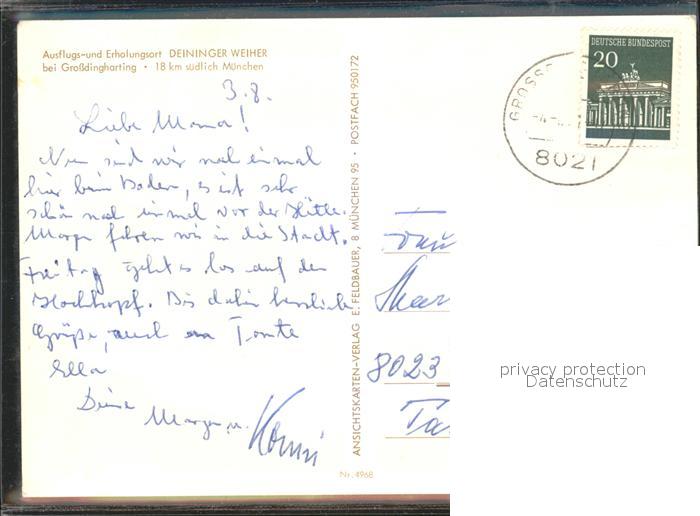 Ausflugs-und Erholungsort DEININGER WEIHER
bei Großdingharting • 18 km südlich München
3.8.
Liebe Mama!
Nun sind wir noch einmal
hier beim Baden, es ist sehr
schön noch einmal vor der Hütte.
Morgen fahren wir in die Stadt.
Freitag geht es los auf den
Hochkopf. Bis dahin herzliche
Grüße, auch an Tante
Ella
Deine
u.
ANSICHTSKARTEN-VERLAG E. FELDBAUER, 8 MÜNCHEN 95 • POSTFACH 950172
Nr. 4968
DEUTSCHE BUNDESPOST
20
GROSS
8021
8023
privacy protection
Datenschutz